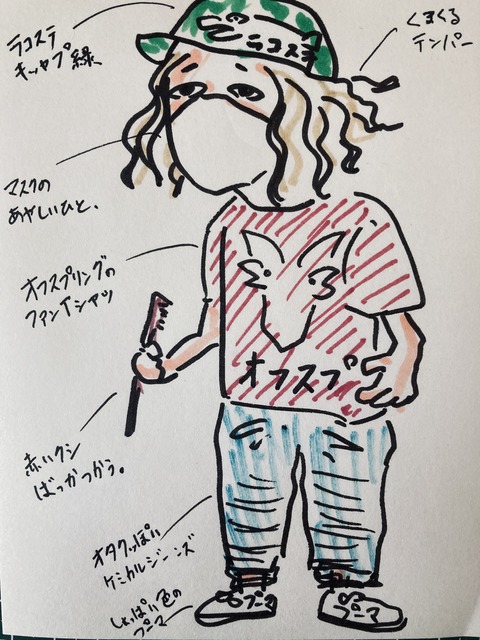 ラコステ
キャップ緑
くるくる
テンパー
ラコステ
マスクの
あやしいひと。
オフスプリングの
ファンTシャツ
オフスプ
赤いクシ
ばっかつかう。
オタクっぽい
ケミカルジーンズ
しょっぱい色の
プーマ
プーマ
プーマ